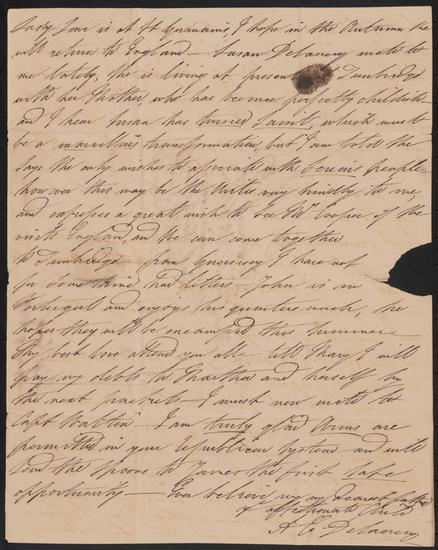 Lady Jane is at St Germains, I hope in the Autumn he
will return to England — Susan Delancey wrote to
me lately, she is living at present at Tunbridge
with her Mother, who has become perfectly childish —
and I hear Susan has turned Saint, which must
be a marvellous transformation, but I am told she
says she only wishes to associate with Serious people —
however this may be she writes very kindly to me
and expresses a great wish to see Mr Cooper if he
visits England, and we can come together
to Tunbridge — from Guernsey I have not
for some time had letters — John is in
Portugal and enjoys his quarters much, he
hopes they will be encamped this Summer
My best love attend you all — tell Mary I will
pay my debts to Martha and herself by
the next packets — I must now write to
Capt — I am truly glad Arms are
permitted in your Republican System and will
send the Spoons to James the first safe
opportunity — Ever believe me my Dearest
yr affectionate
A E Delancey